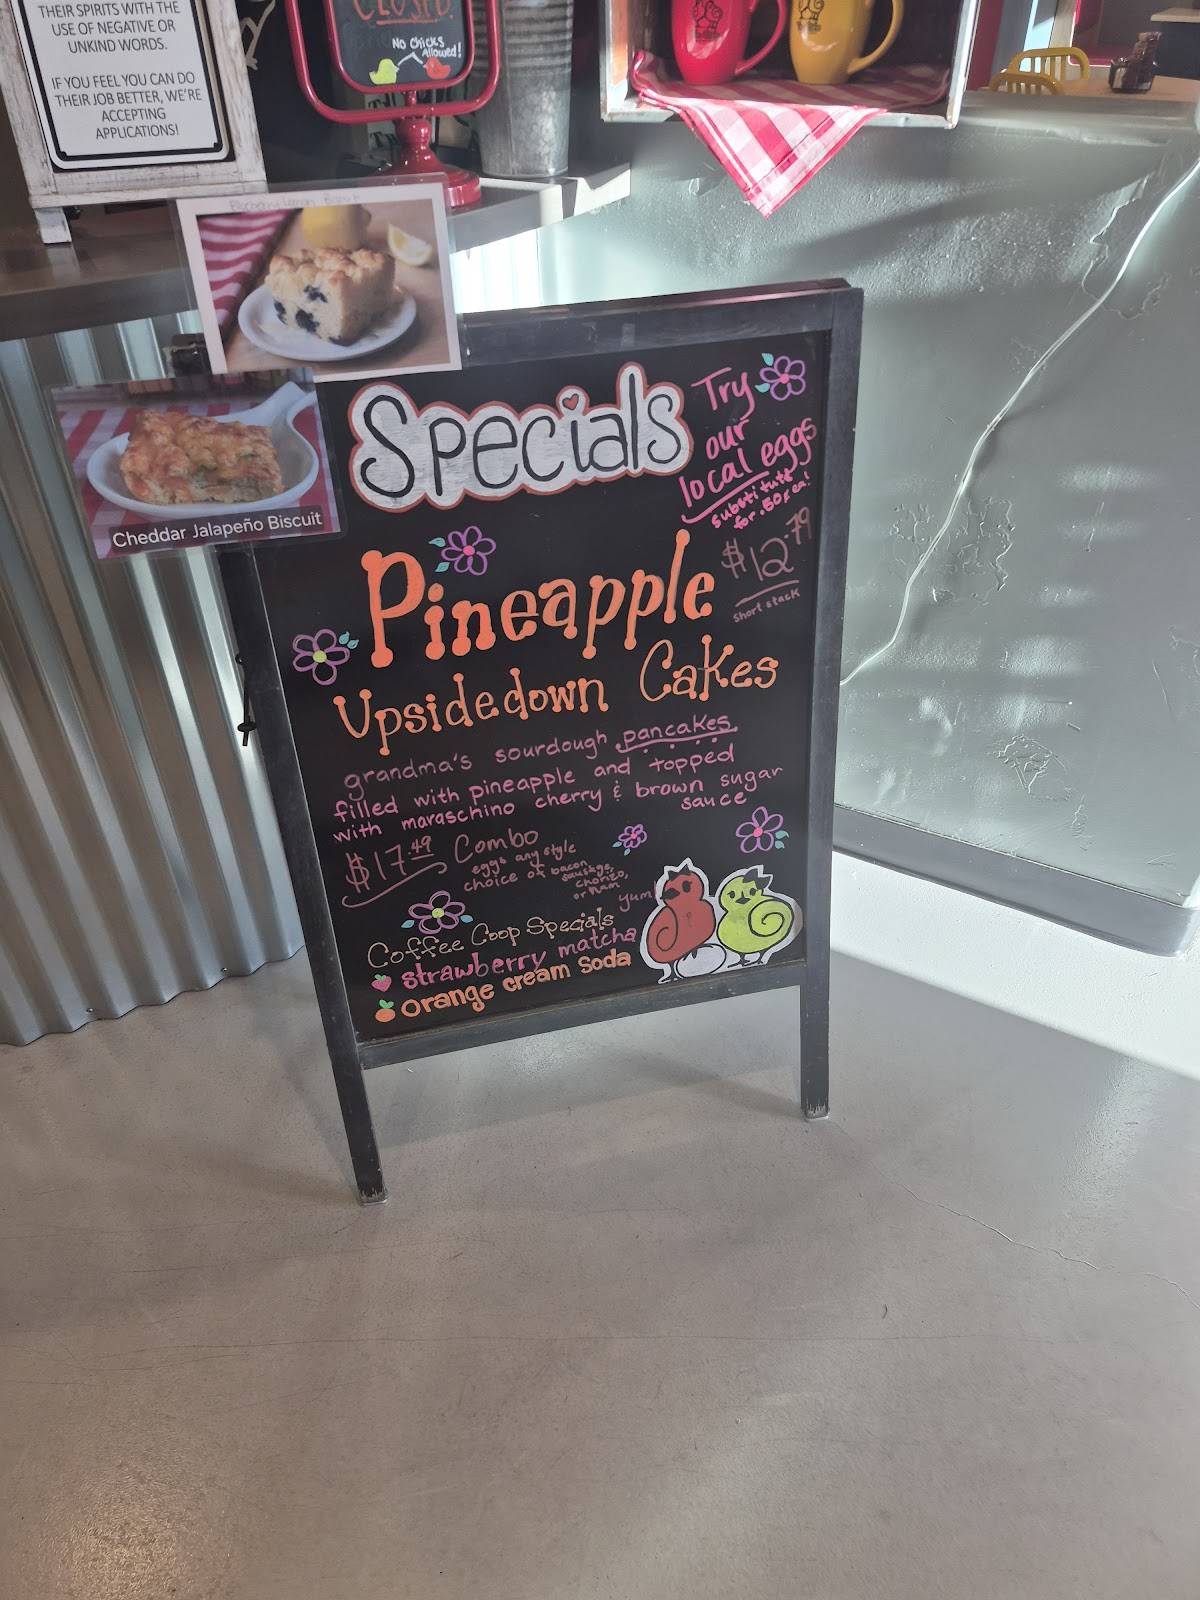 THEIR SPIRITS WITH THE
USE OF NEGATIVE OR
UNKIND WORDS.
IF YOU FEEL YOU CAN DO
THEIR JOB BETTER, WE'RE
ACCEPTING
APPLICATIONS!
CLOSED.
No Chicks
Allowed!
Blueberry Lemon Biscuit
Cheddar Jalapeño Biscuit
Specials
Try
our
local eggs
substitute
for .50¢ ea!
Pineapple
$12.79
short stack
Upsidedown Cakes
grandma's sourdough pancakes
filled with pineapple and topped
with maraschino cherry & brown sugar
sauce
$17.49 Combo
eggs any style
choice of bacon,
sausage,
chorizo,
or ham
yum
Coffee Coop Specials
strawberry matcha
orange cream soda